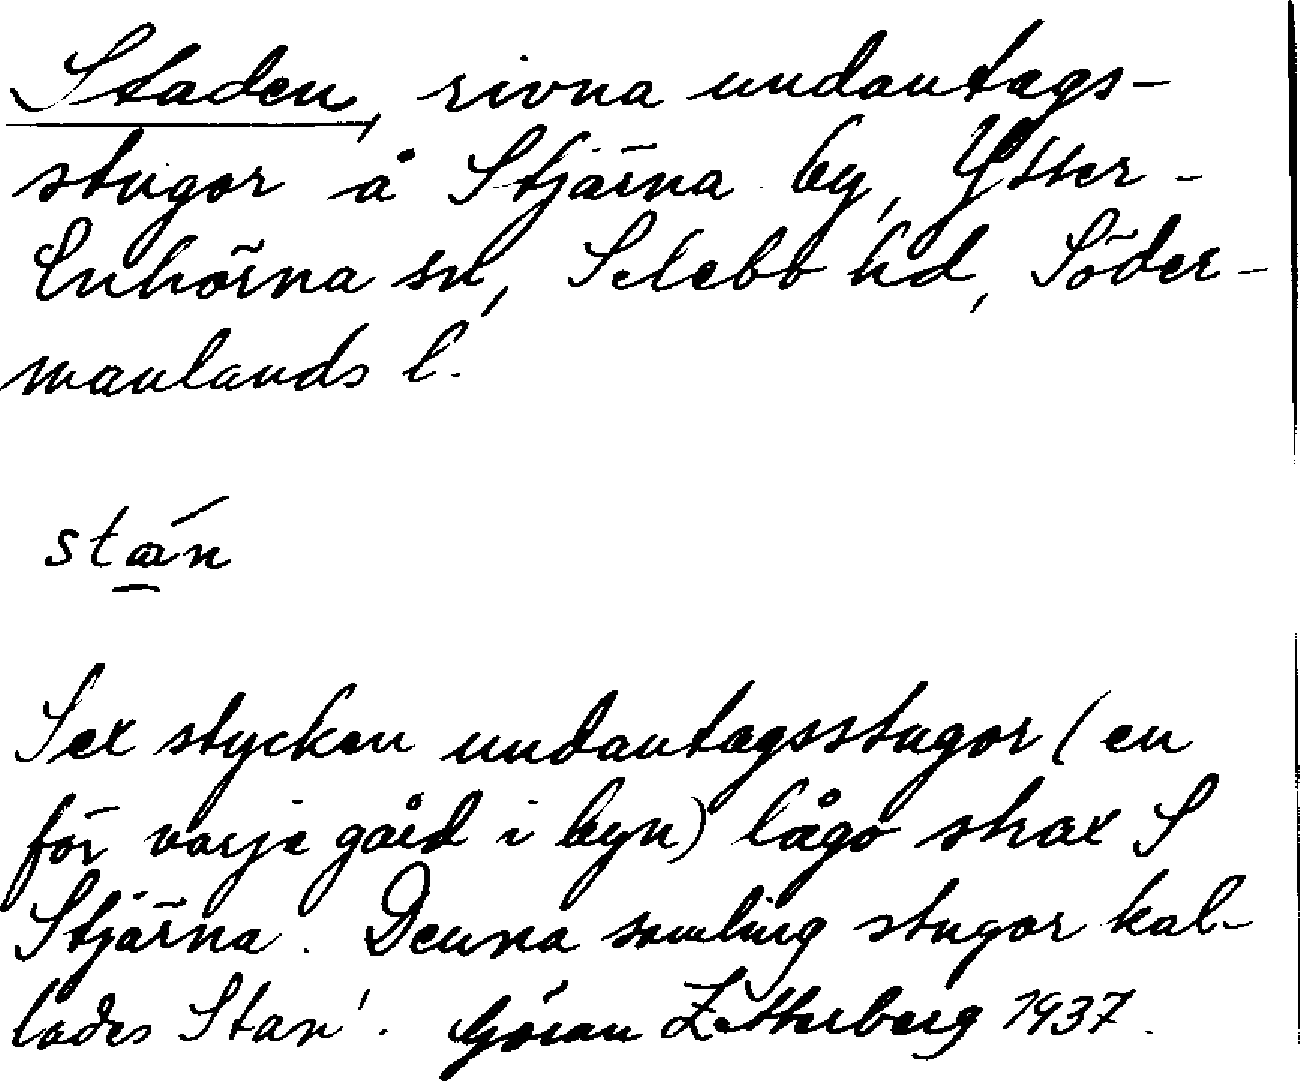 Staden, rivna undantags-
stugor å Stjärna by, Ytter-
Enhörna sn, Selebo hd, Söder-
manlands l.
stán
Sex stycken undantagsstugor (en
för varje gård i byn) lågo strax S
Stjärna. Denna samling stugor kal-
lades Stan'. Göran Zetterberg 1937.